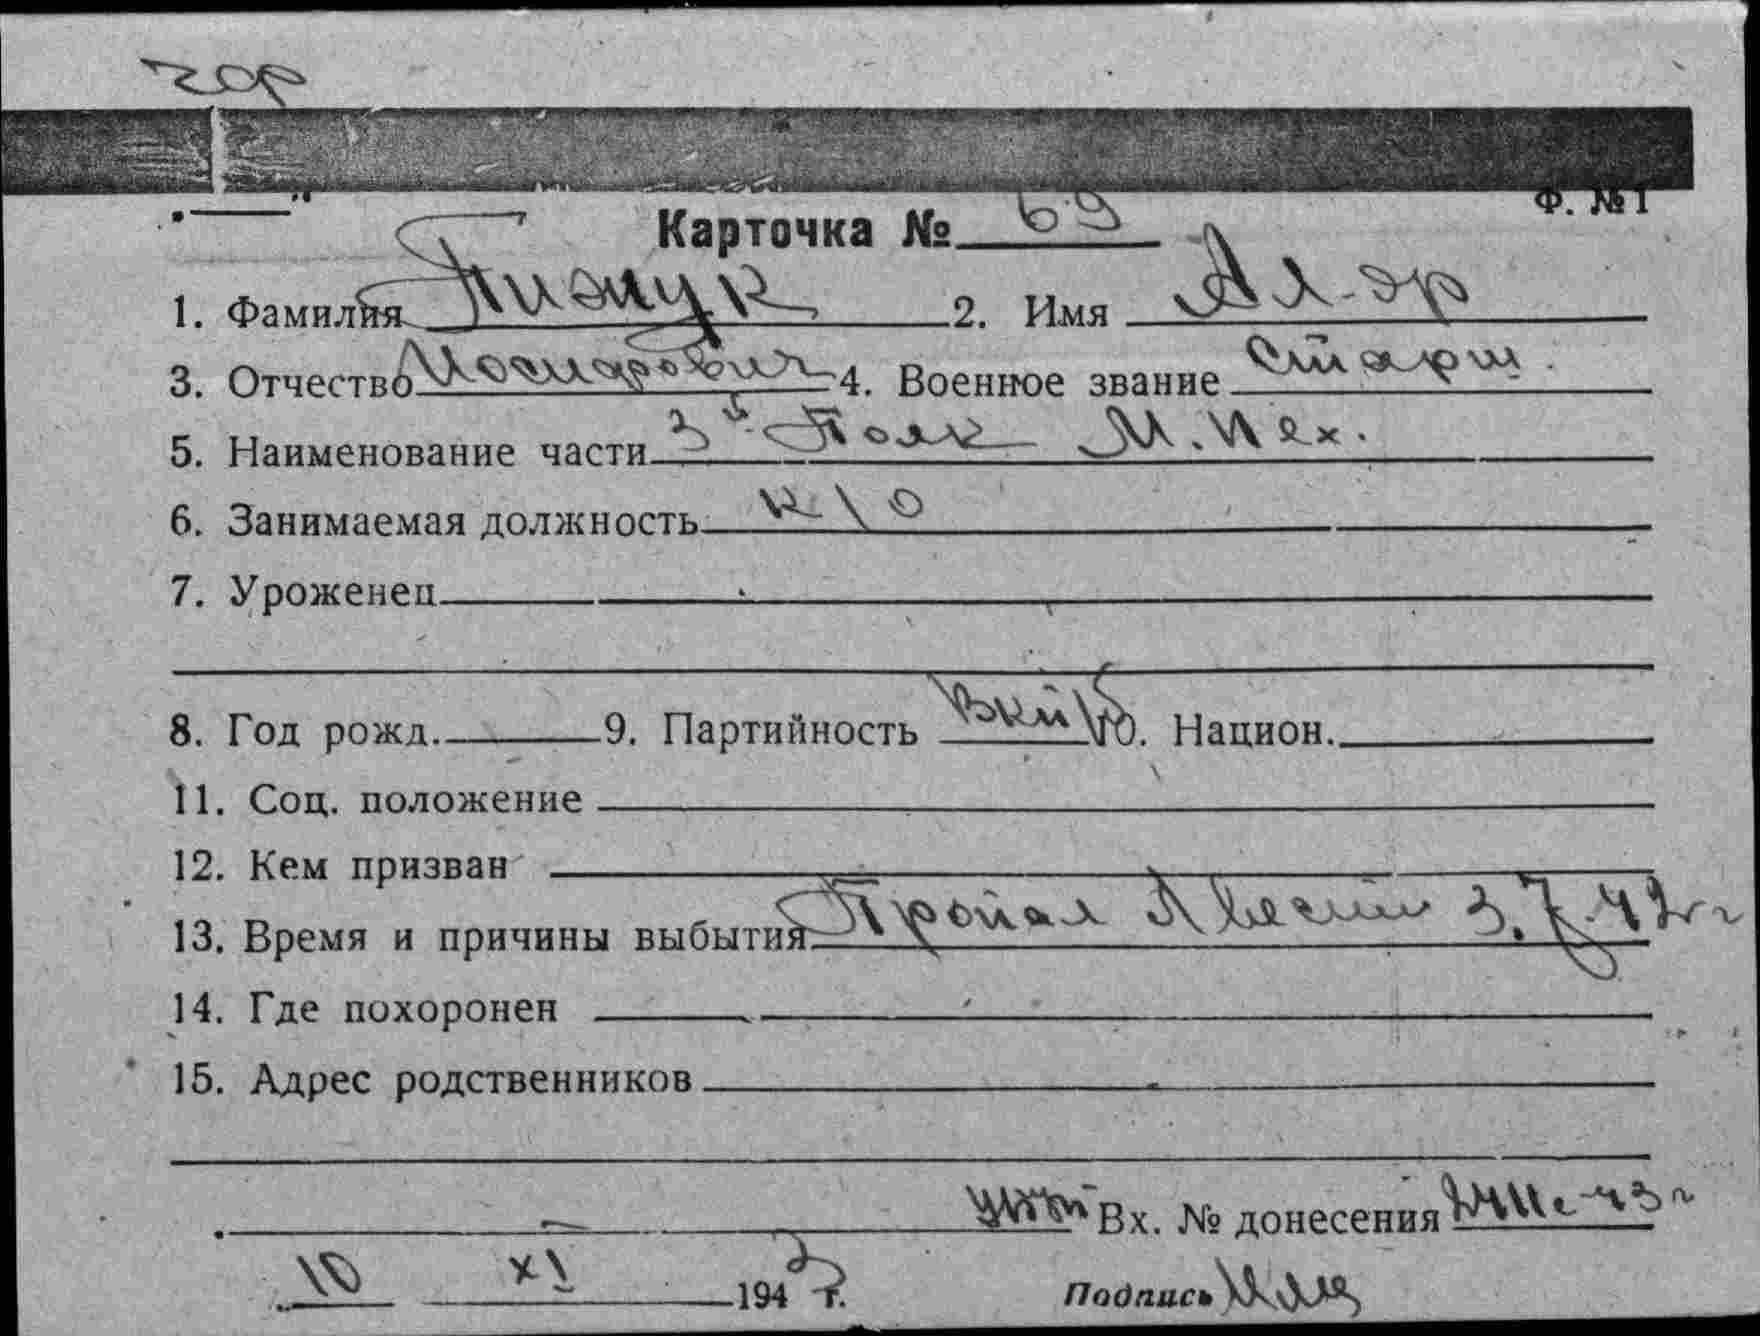 Ф. №1
Карточка № 69
1. Фамилия 2. Имя Ал-др
3. Отчество 4. Военное звание Старш.
5. Наименование части 3й Полк М.Пех.
6. Занимаемая должность к/о
7. Уроженец
8. Год рожд. 9. Партийность ВКП/б 10. Национ.
11. Соц. положение
12. Кем призван
13. Время и причины выбытия Пропал без вести
14. Где похоронен
15. Адрес родственников
Вх. № донесения
10 XI 1943 г. Подпись